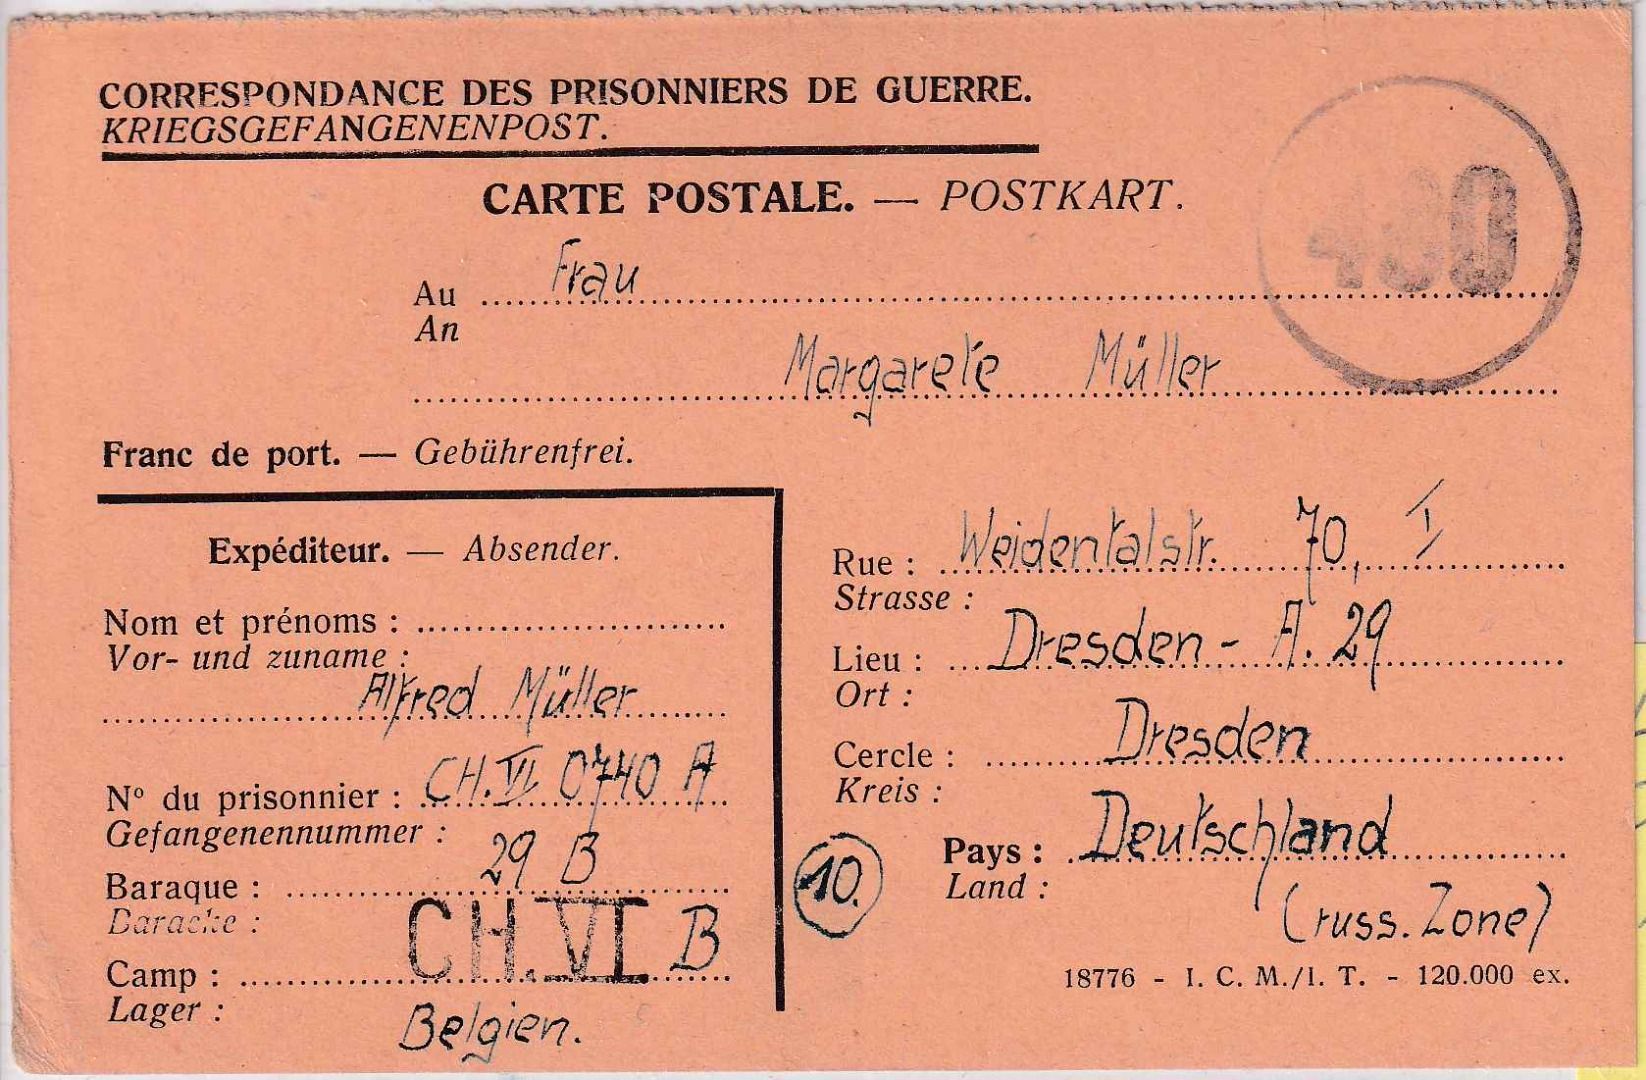 CORRESPONDANCE DES PRISONNIERS DE GUERRE.
KRIEGSGEFANGENENPOST.
CARTE POSTALE. — POSTKART.
430
Au Frau
An
Margarete Müller
Franc de port. — Gebührenfrei.
Expéditeur. — Absender.
Nom et prénoms :
Vor- und zuname :
Alfred Müller
N° du prisonnier : CH.VI 0740 A
Gefangenennummer :
Baraque : 29 B
Baracke :
Camp : CH.VI B
Lager :
Belgien.
10.
Rue : Weidentalstr. 70, I
Strasse :
Lieu : Dresden - A. 29
Ort :
Cercle : Dresden
Kreis :
Pays : Deutschland
Land :
(russ. Zone)
18776 - I. C. M./I. T. - 120.000 ex.